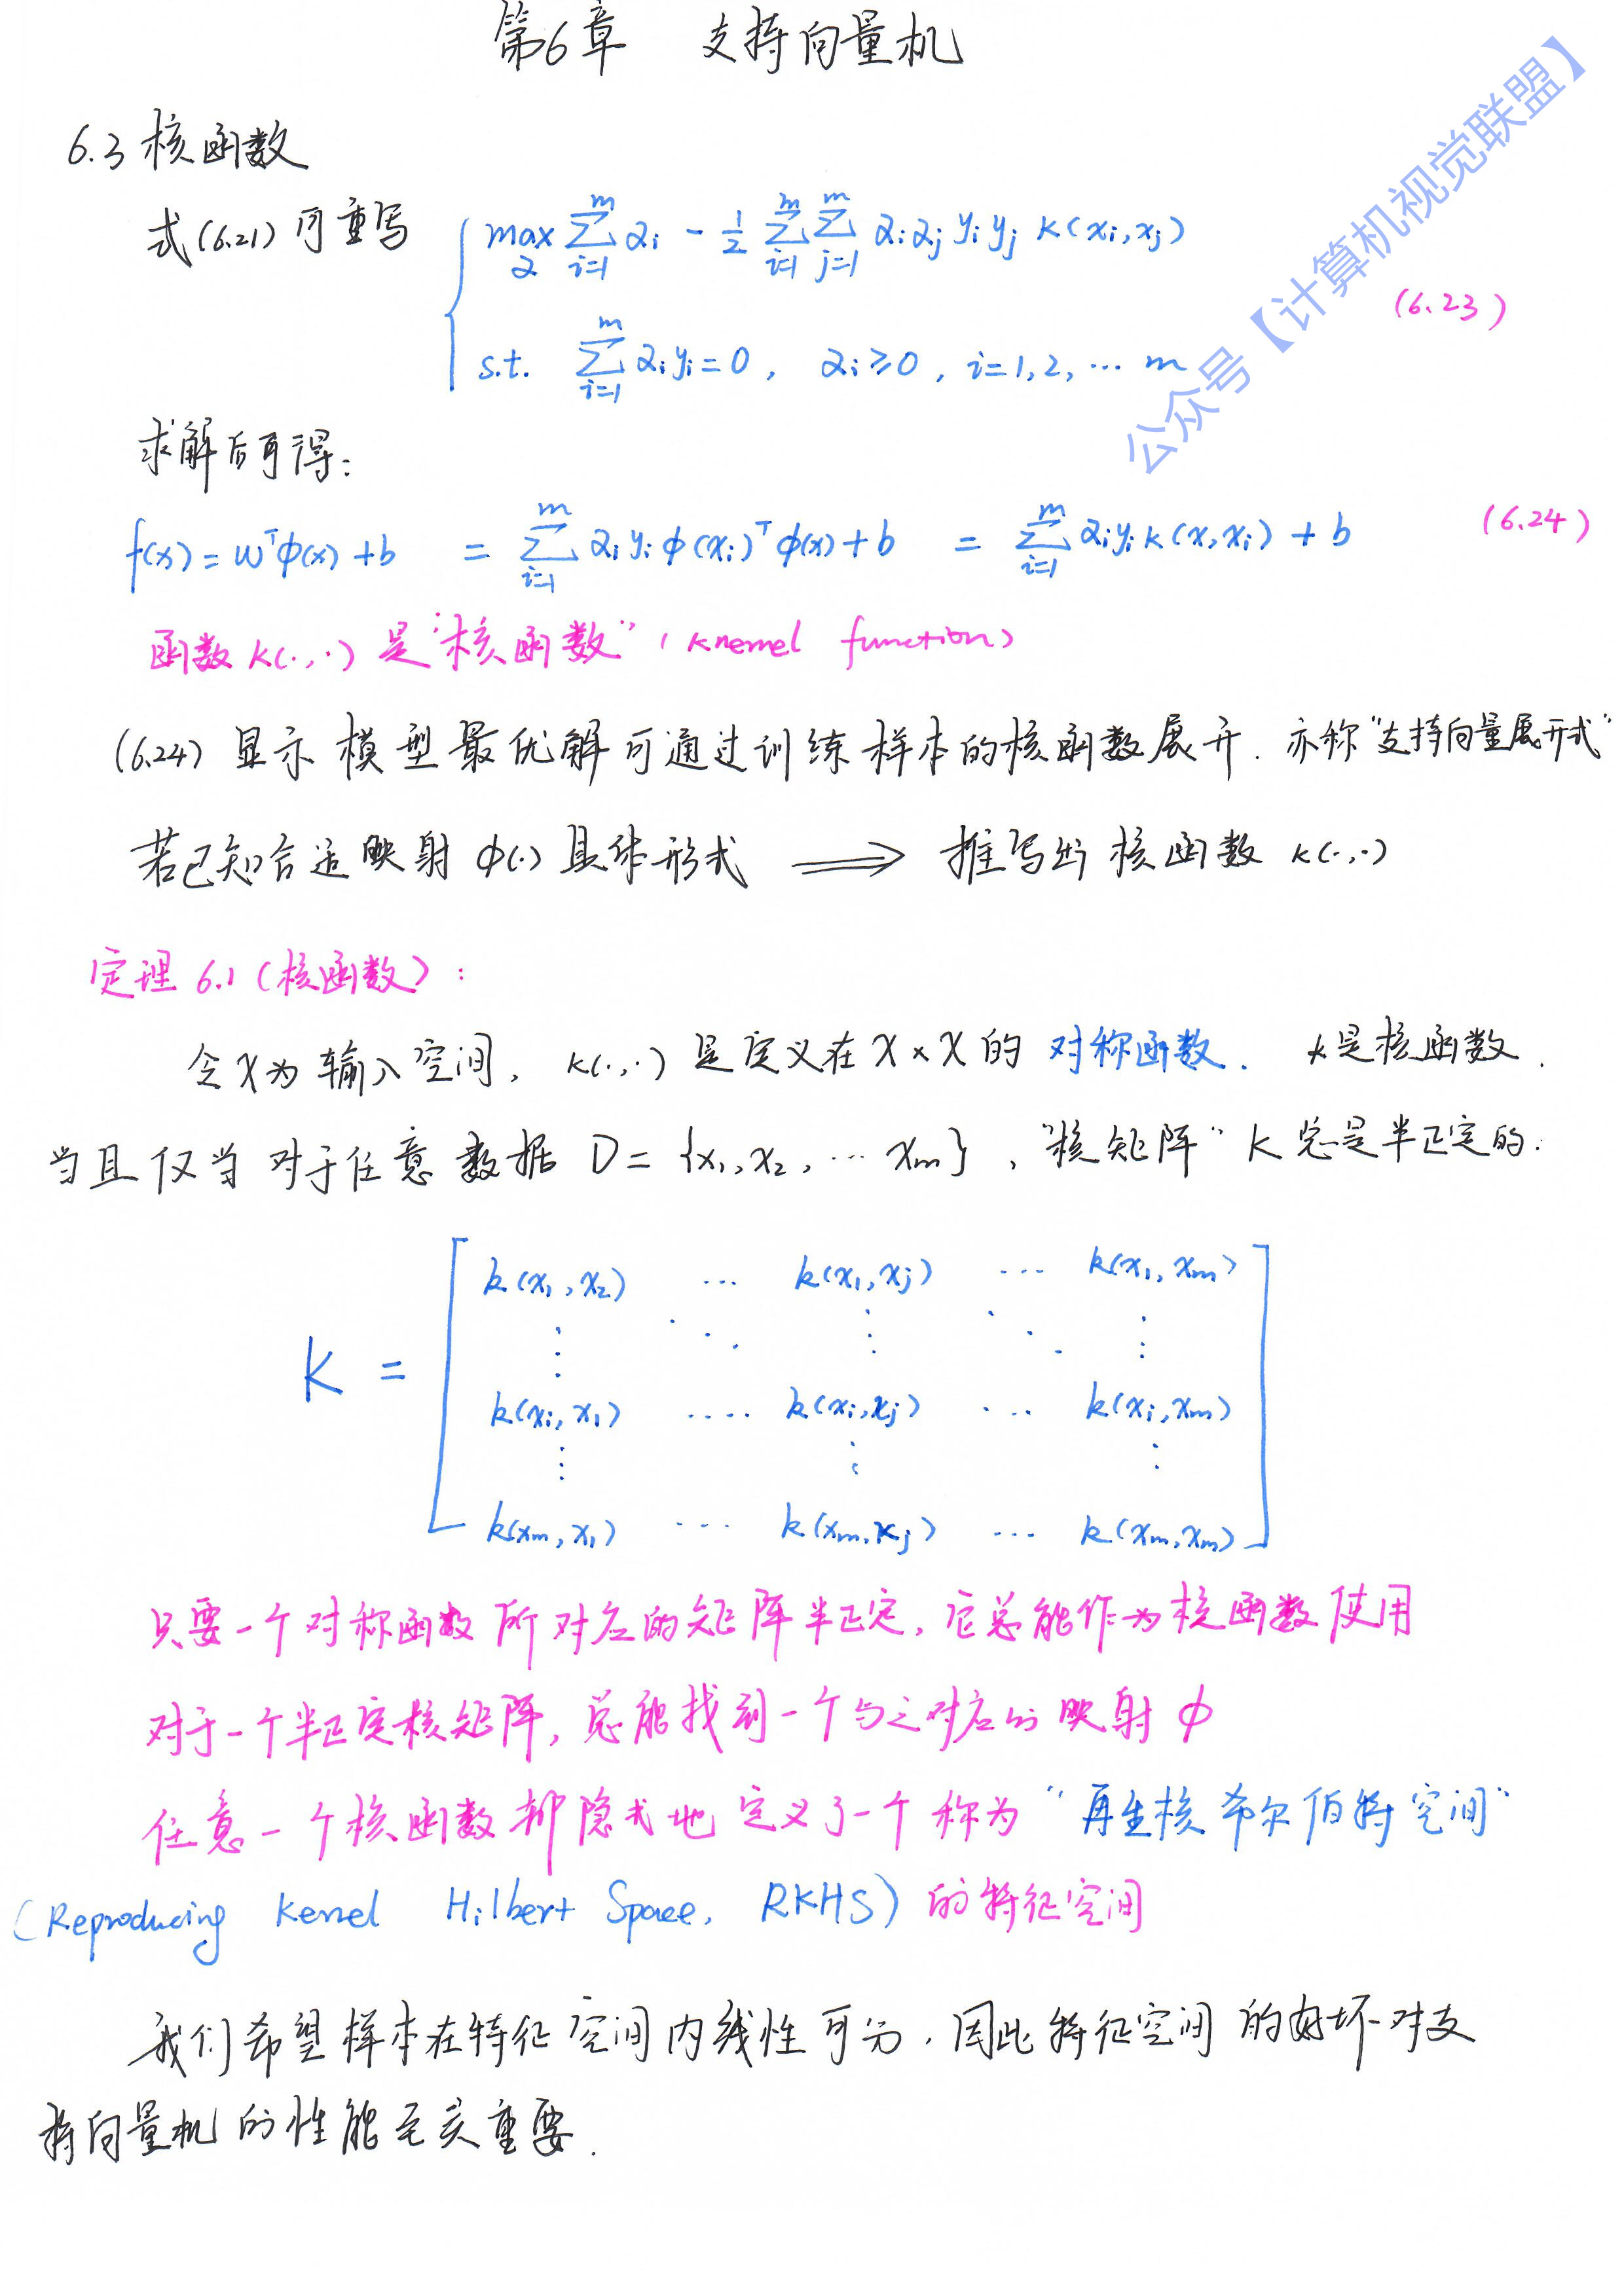 第6章 支持向量机
公众号【计算机视觉联盟】
6.3 核函数
式(6.21)可重写 { max_α Σ_{i=1}^{m} α_i - 1/2 Σ_{i=1}^{m} Σ_{j=1}^{m} α_i α_j y_i y_j k(x_i, x_j)
(6.23)
s.t. Σ_{i=1}^{m} α_i y_i = 0, α_i ≥ 0, i=1,2,… m
求解后可得:
f(x) = w^T φ(x) + b = Σ_{i=1}^{m} α_i y_i φ(x_i)^T φ(x) + b = Σ_{i=1}^{m} α_i y_i k(x, x_i) + b (6.24)
函数 k(·,·) 是“核函数” (knernel function)
(6.24) 显示模型最优解可通过训练样本的核函数展开. 亦称“支持向量展开式”
若已知合适映射 φ(·) 具体形式 ⟹ 推写出 核函数 k(·,·)
定理 6.1 (核函数):
令 X 为输入空间, k(·,·) 是定义在 X × X 的 对称函数. k是核函数.
当且仅当对于任意数据 D = {x_1, x_2, … x_m}, “核矩阵” K 总是半正定的:
k(x_1, x_2) … k(x_1, x_j) … k(x_1, x_m)
K =
k(x_i, x_1) …. k(x_i, x_j) … k(x_i, x_m)
k(x_m, x_1) … k(x_m, x_j) … k(x_m, x_m)
只要一个对称函数所对应的矩阵半正定, 它总能作为核函数使用
对于一个半正定核矩阵, 总能找到一个与之对应的映射 φ
任意一个核函数都隐式地定义了一个称为“再生核希尔伯特空间”
(Reproducing Kernel Hilbert Space, RKHS) 的特征空间
我们希望样本在特征空间内线性可分, 因此特征空间的好坏对支
持向量机的性能至关重要.